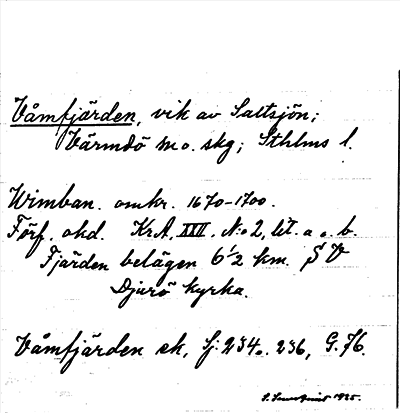 Våmfjärden, vik av Saltsjön;
Värmdö m.o. skg; Sthlms l.
Wimban. omkr. 1670-1700.
Förf. okd. KrA, XXV, N:o 2, lit. a o. b.
Fjärden belägen 6 1/2 km. SV
Djurö kyrka.
Våmfjärden ek, Sj: 234 o. 236, G. 76.
1925.